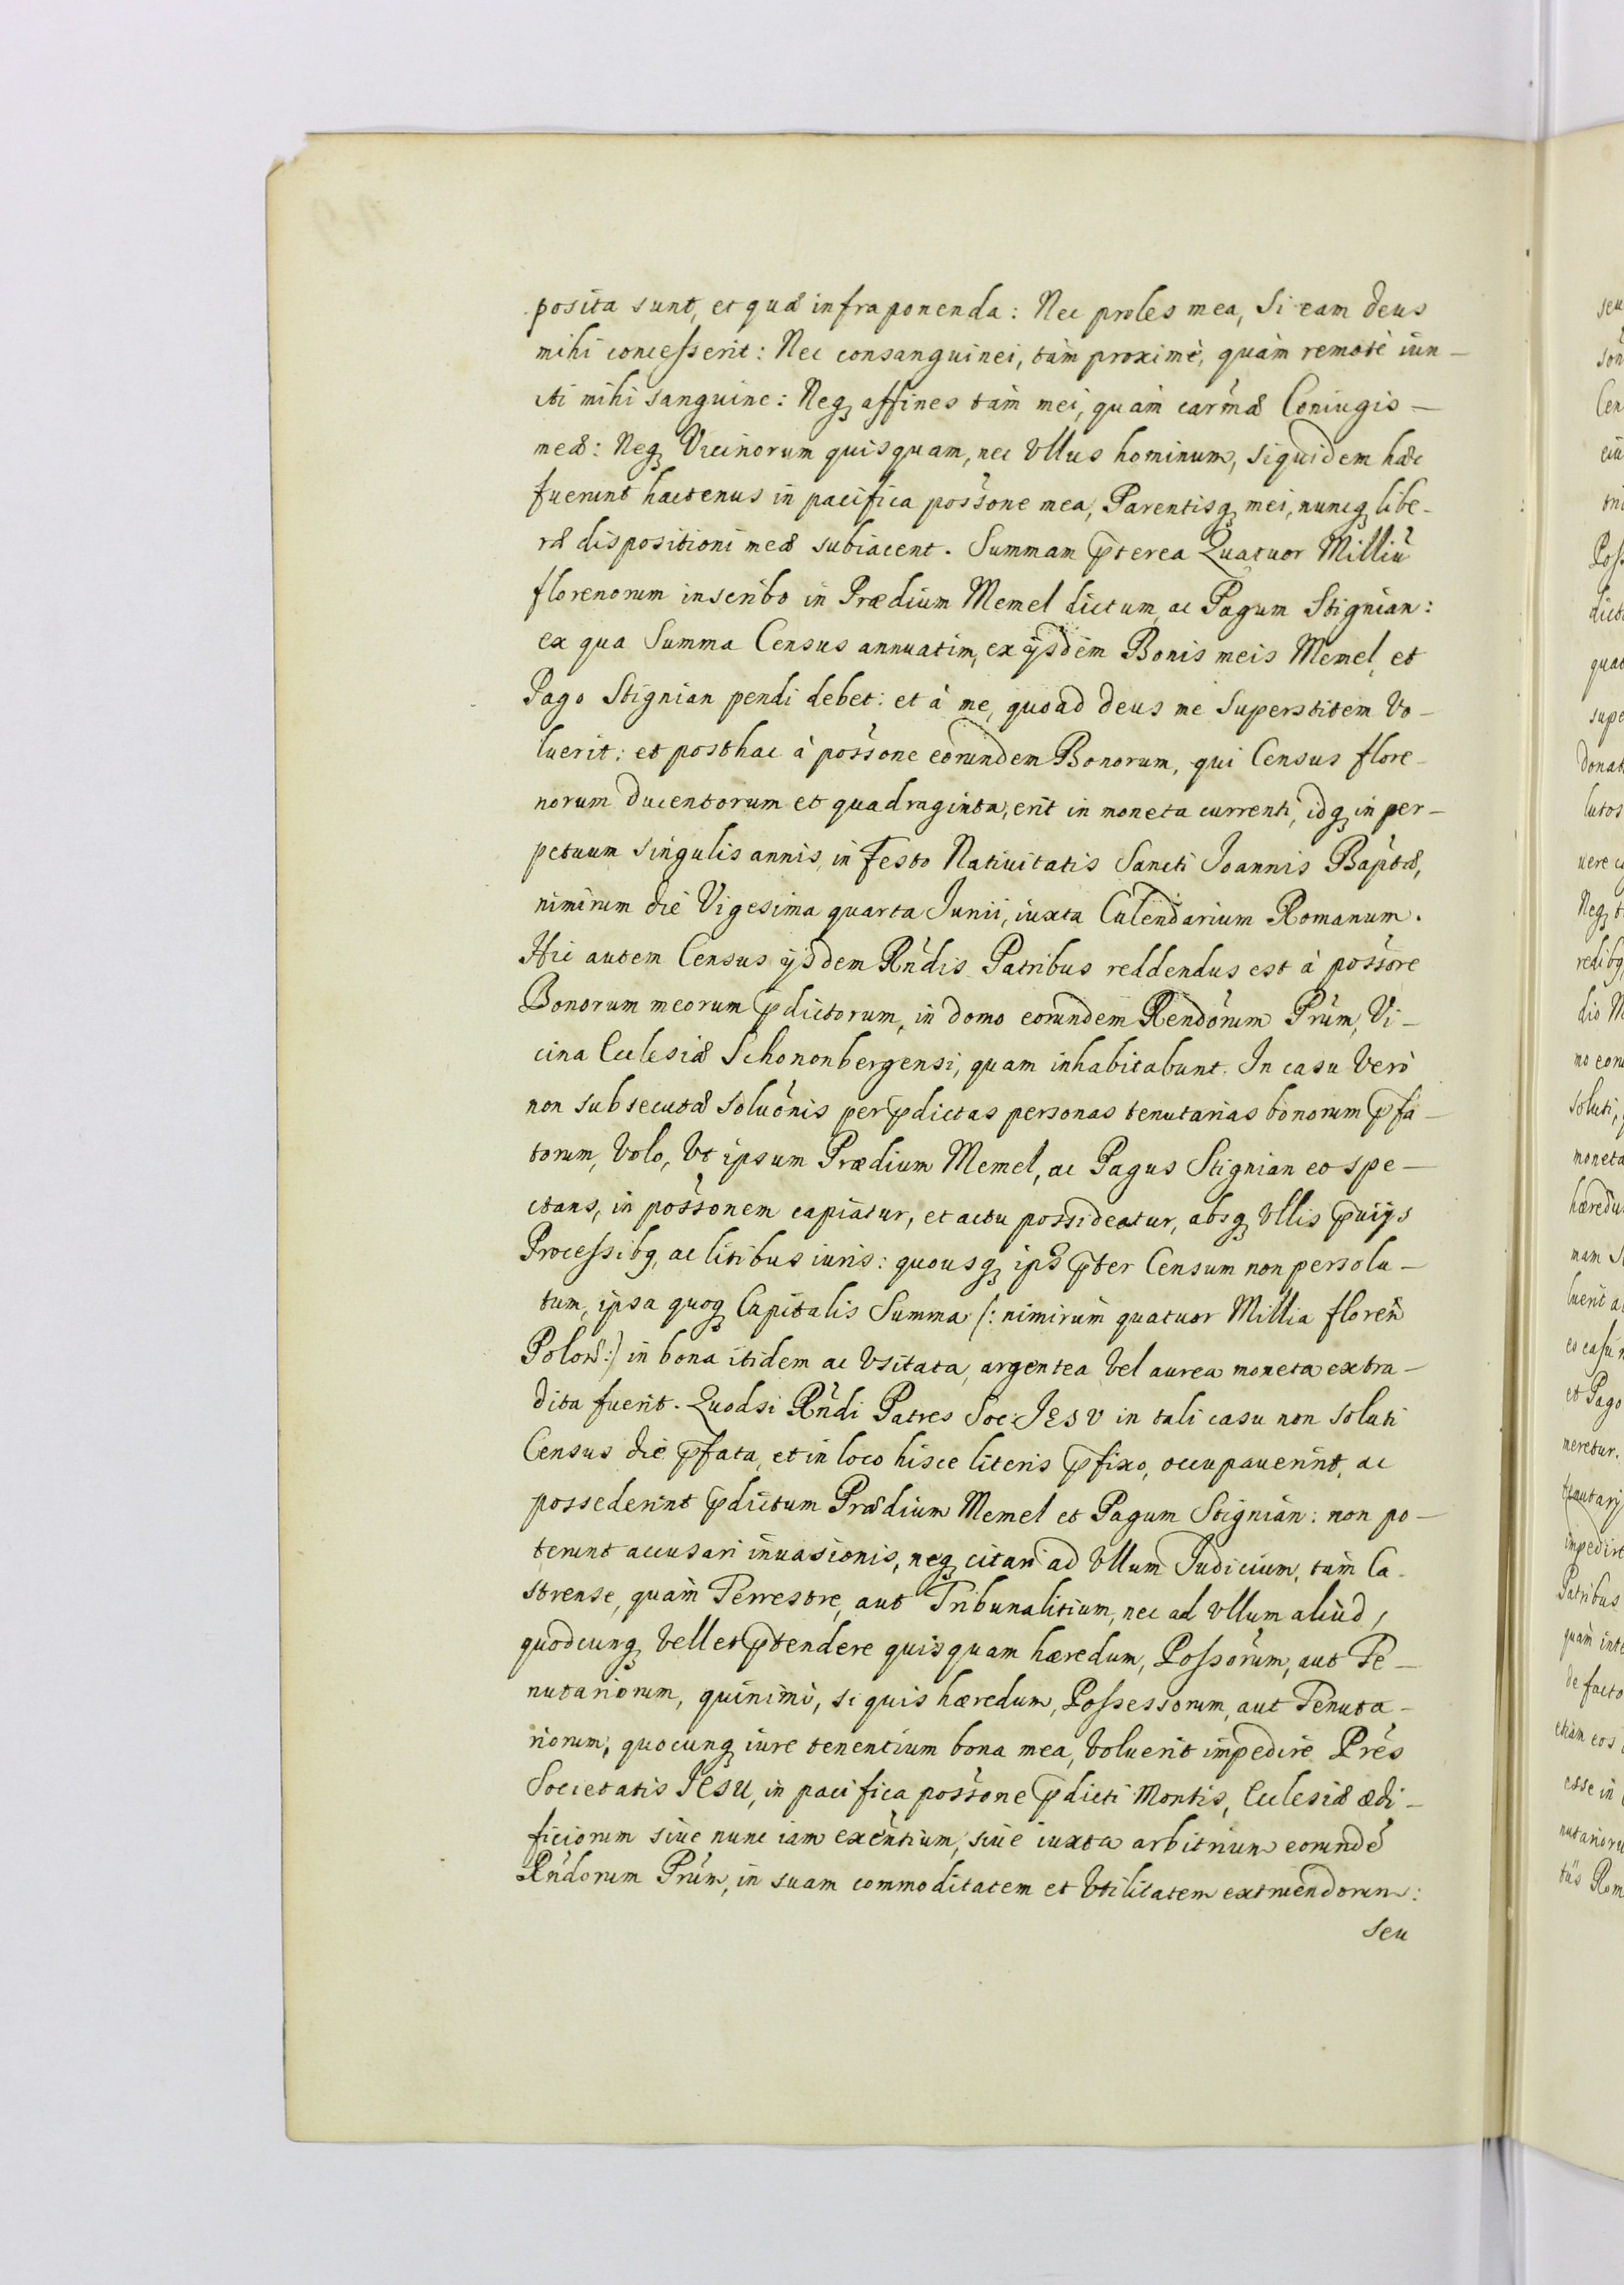 posita sunt, et quæ infraponenda: Nec proles mea, Si eam Deus
mihi concesserit: Nec consanguinei, tàm proximè, quàm remotè iun-
cti mihi sanguine: Neq; affines tàm mei, quàm carm̃æ Coniugis —
meæ: Neq; Vicinorum quisquam, nec Vllus hominum, siquidem hæc
fuerunt hactenus in pacifica possõne mea, Parentisq; mei, nuncq; libe-
ræ dispositioni meæ subiacent. Summam p̃terea Quatuor Milliũ
florenorum inscribo in Prædium Memel dictum, ac Pagum Stignian:
ex qua Summa Census annuatim, ex ijsdem Bonis meis Memel, et
Pago Stignian pendi debet: et à me, quoad Deus me Superstitem Vo-
luerit: et posthac à possõne eorundem Bonorum, qui Census flore-
norum Ducentorum et quadraginta, erit in moneta currenti, idq; in per-
petuum singulis annis, in Festo Natiuitatis Sancti Joannis Bap̃tæ,
nimirum die Vigesima quarta Junii, iuxta Calendarium Romanum.
Hic autem Census ijsdem Rñdis Patribus reddendus est à possõre
Bonorum meorum p̃dictorum, in domo eorundem Rendõrum Prũm, Vi-
cina Ecclesiæ Schononbergensi, quam inhabitabunt. In casu Verò
non subsecutæ soluõnis per p̃dictas personas tenutarias bonorum p̃fa-
torum, Volo, Vt ipsum Prædium Memel, ac Pagus Stignian eo spe-
ctans, in possõnem capiatur, et actu possideatur, absq; Vllis p̃uijs
Processibq; ac litibus iuris: quousq; ip̃s p̃ter Censum non persolu-
tum, ipsa quoq; Capitalis Summa (: nimirùm quatuor Millia floreñ
Poloñ:) in bona itidem ac Vsitata, argentea Vel aurea moneta extra-
dita fuerit. Quodsi Rñdi Patres Soc: JESV in tali casu non soluti
Census die p̃fata, et in loco hisce literis p̃fixo, occupauerint, ac
possederint p̃dictum Prædium Memel et Pagum Stignian: non po-
terunt accusari inuasionis, neq; citari ad Vllum Judicium, tàm Ca-
strense, quàm Terrestre, aut Tribunalitium, nec ad Vllum aliud,
quodcunq; Vellet p̃tendere quisquam hæredum, Possõrum, aut Te-
nutariorum, quinimò, si quis hæredum, Possessorum, aut Tenuta-
riorum, quocunq; iure tenentium bona mea, Voluerit impedire Prẽs
Societatis JESU, in pacifica possõne p̃dicti Montis, Ecclesiæ ædi-
ficiorum siue nunc iam exeñtium, siue iuxta arbitrium eorundẽ
Rñdorum Prũm, in suam commoditatem et Vtilitatem extruendorum:
seu